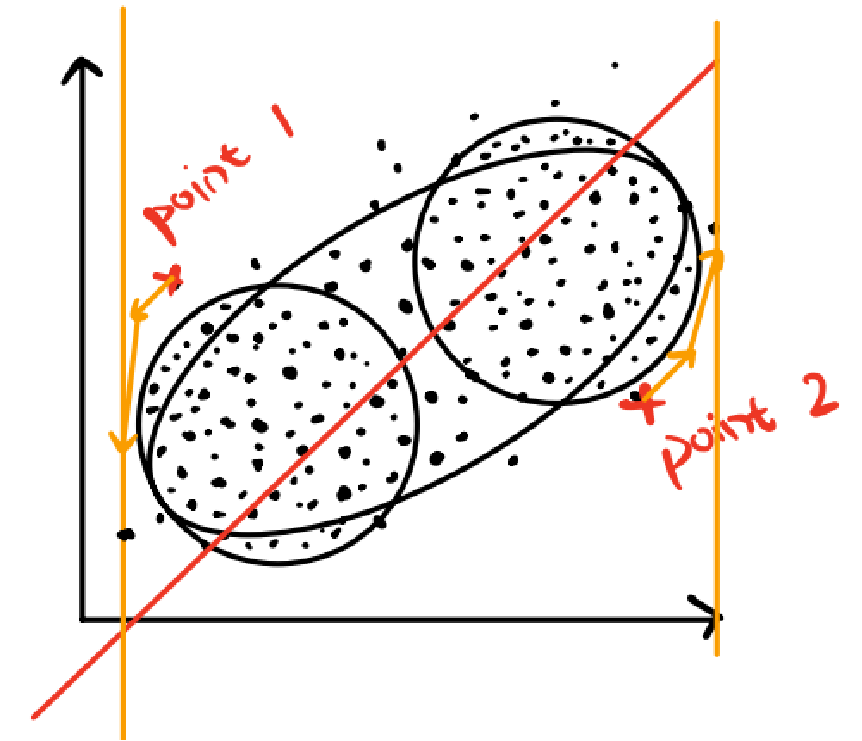 point 1
point 2